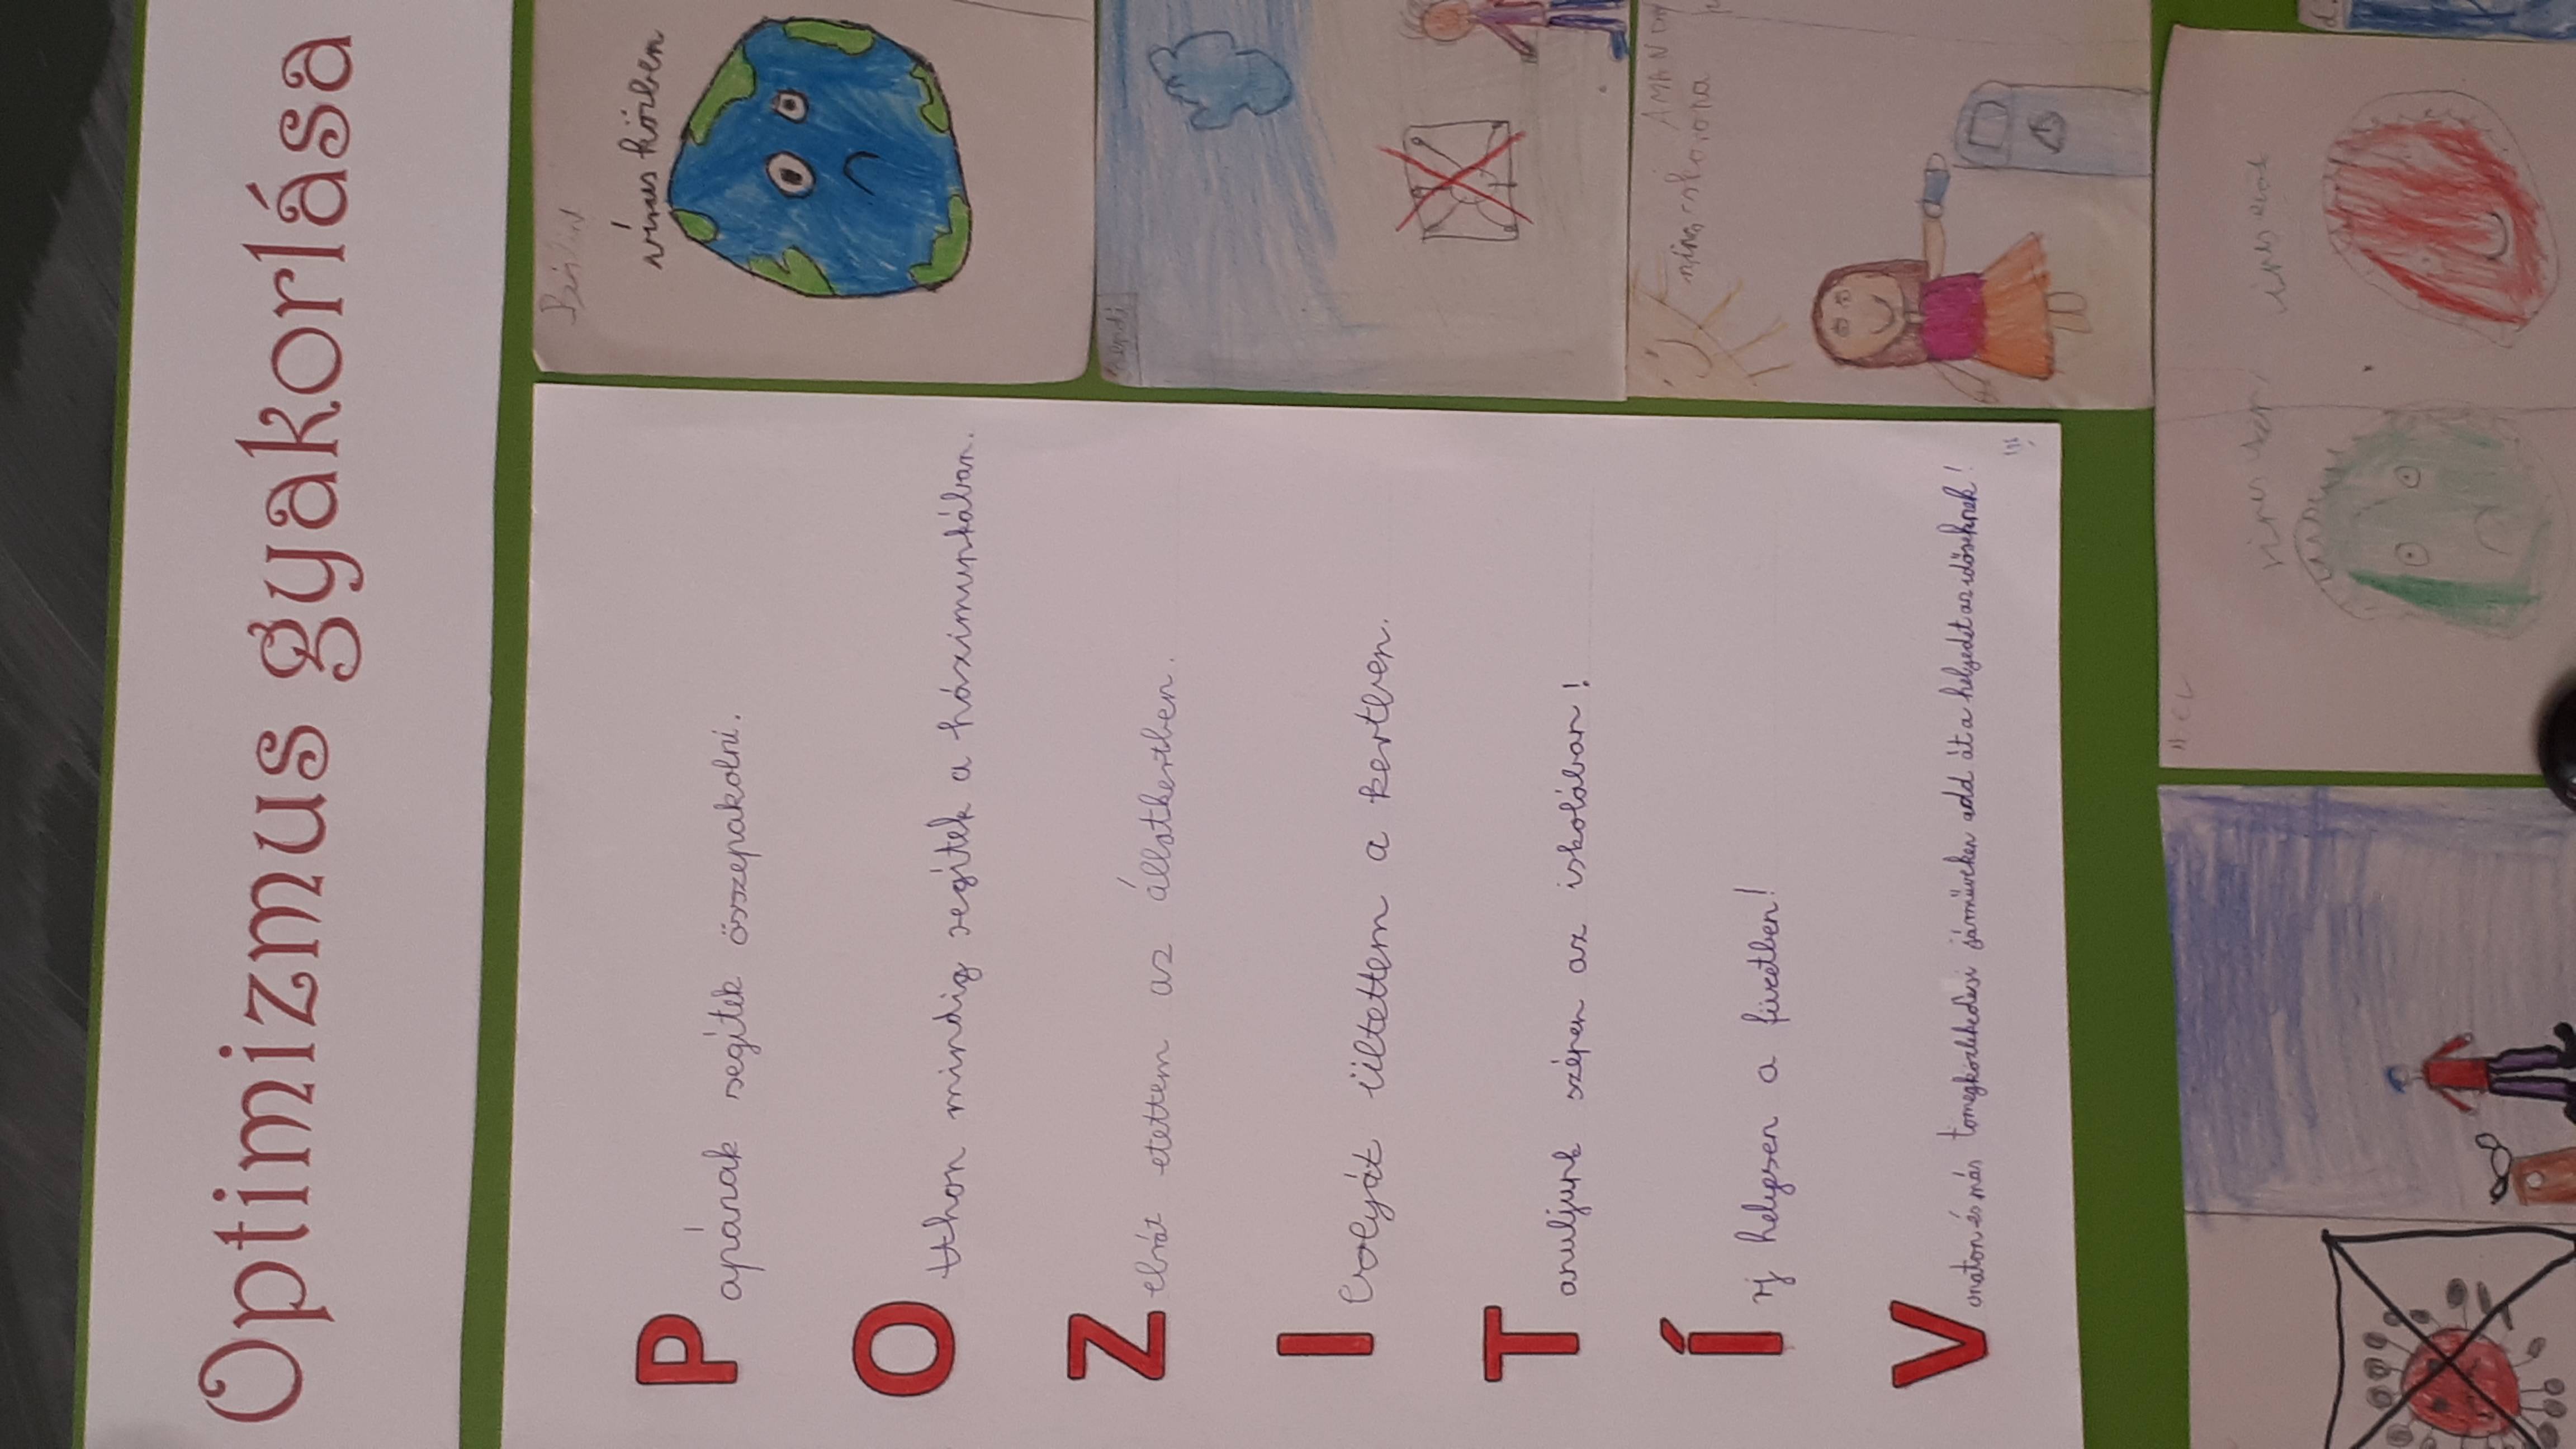 Optimizmus gyakorlása
Papának segítek összepakolni.
Otthon mindig segítek a házimunkában.
Zebrát etettem az állatkertben.
Ibolyát ültettem a kertben.
Tanuljunk szépen az iskolában!
Írj helyesen a füzetben!
Vonaton és más tömegközlekedési járműveken add át a helyedet az időseknek!
vírus közben
AMANDA